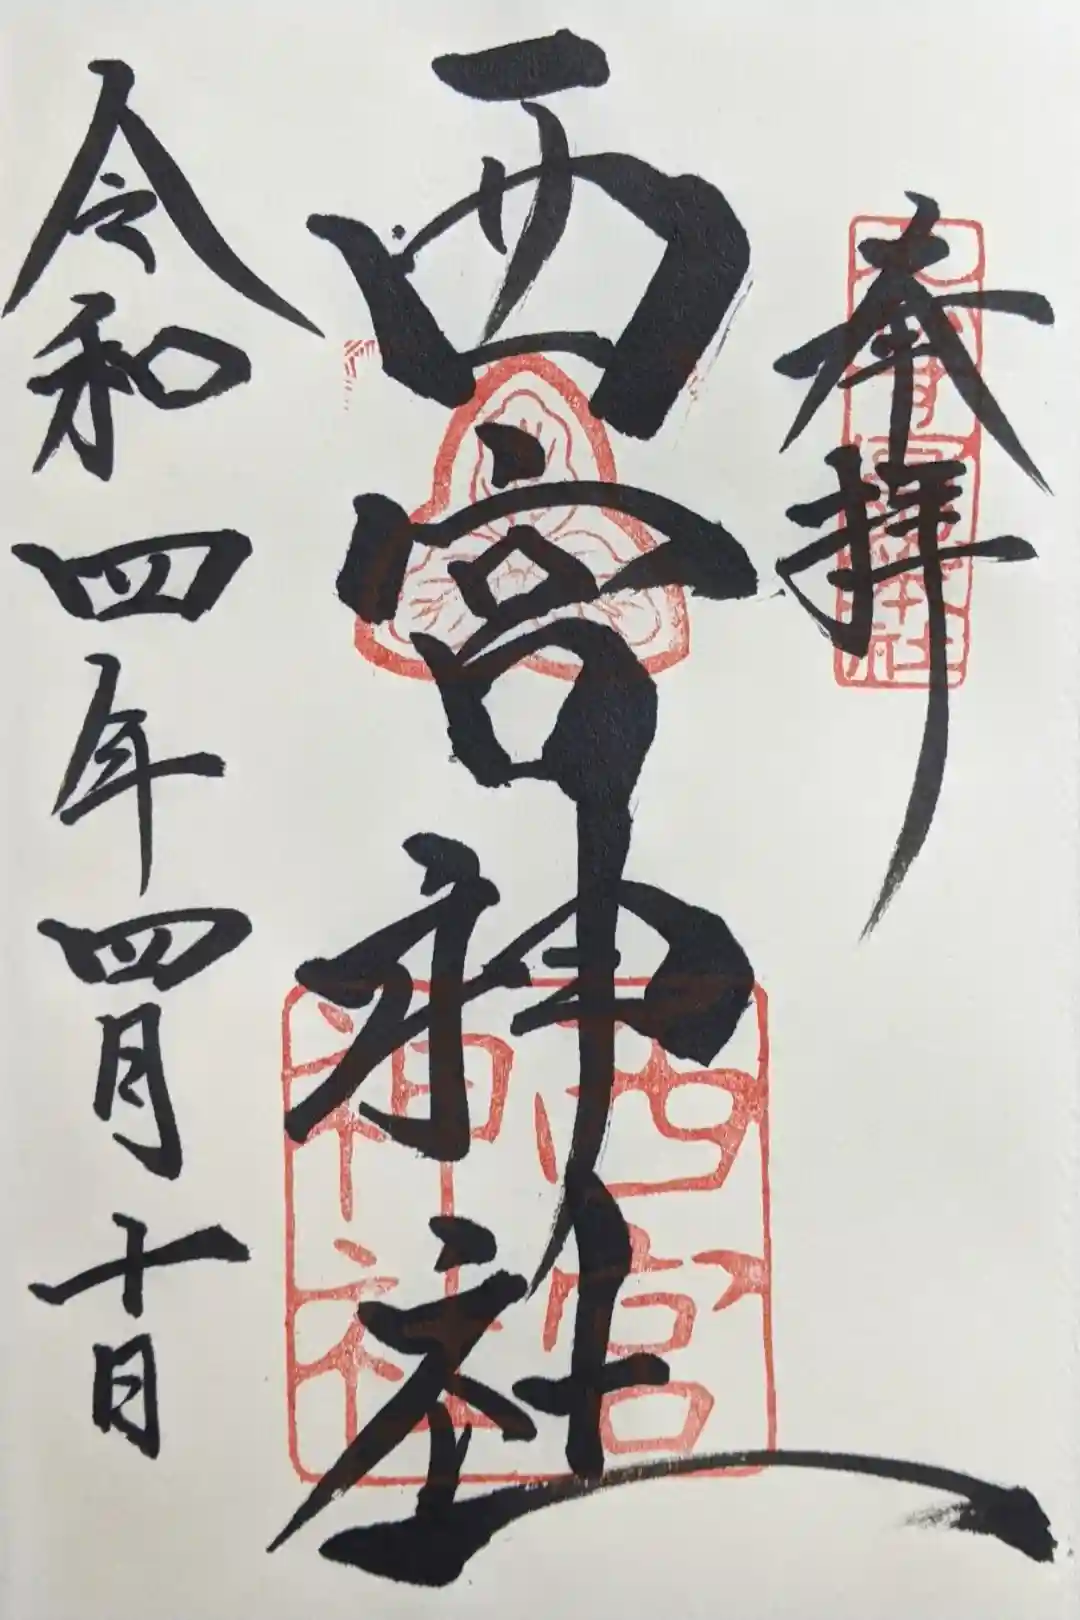 奉拝
西宮神社
西宮神社
令和四年四月十日